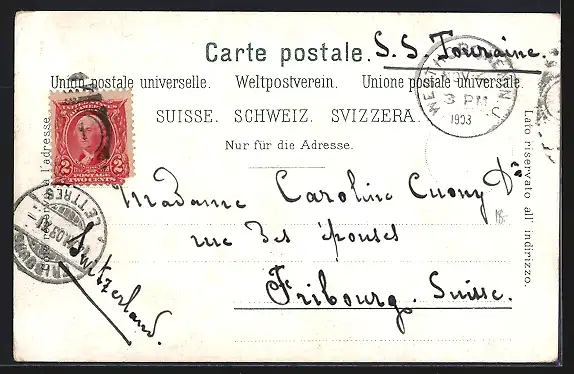 Carte postale. S. S. Touraine.
Union postale universelle. Weltpostverein. Unione postale universale.
SUISSE. SCHWEIZ. SVIZZERA.
Nur für die Adresse.
3 PM
1903
POSTAGE
2 2
TWO CENTS
à l'adresse.
Lato riservato all' indirizzo.
LETTRES
Madame Caroline Cuony Dr
rue des épouses
Fribourg. Suisse.
Switzerland.